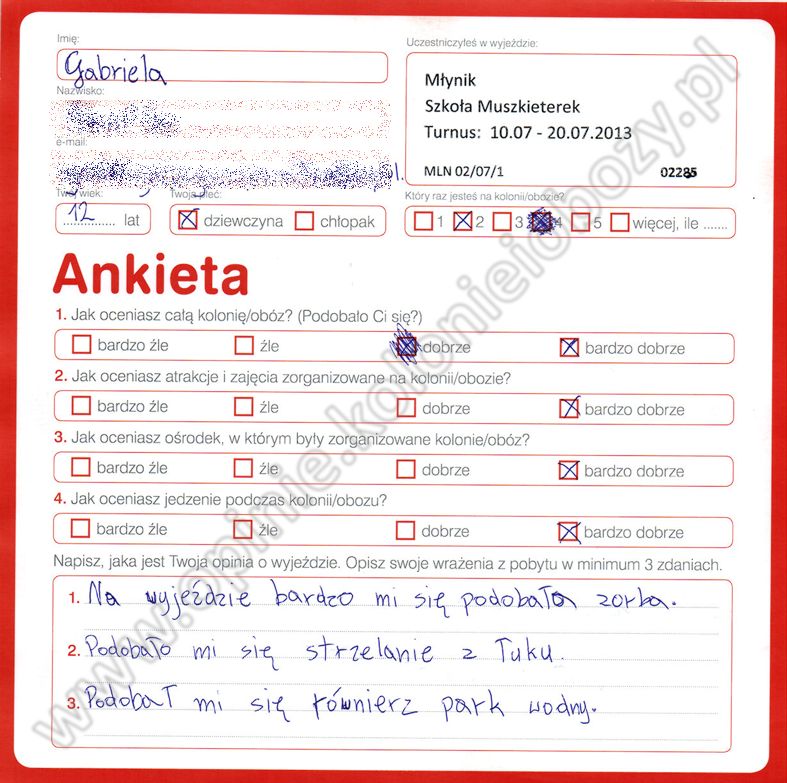 Imię:
Gabriela
Nazwisko:
e-mail:
Twój wiek:
12 lat
Twoja płeć:
dziewczyna chłopak
Uczestniczyłeś w wyjeździe:
Młynik
Szkoła Muszkieterek
Turnus: 10.07 - 20.07.2013
MLN 02/07/1 02285
Który raz jesteś na kolonii/obozie?
1 2 3 4 5 więcej, ile .......
Ankieta
1. Jak oceniasz całą kolonię/obóz? (Podobało Ci się?)
bardzo źle źle dobrze bardzo dobrze
2. Jak oceniasz atrakcje i zajęcia zorganizowane na kolonii/obozie?
bardzo źle źle dobrze bardzo dobrze
3. Jak oceniasz ośrodek, w którym były zorganizowane kolonie/obóz?
bardzo źle źle dobrze bardzo dobrze
4. Jak oceniasz jedzenie podczas kolonii/obozu?
bardzo źle źle dobrze bardzo dobrze
Napisz, jaka jest Twoja opinia o wyjeździe. Opisz swoje wrażenia z pobytu w minimum 3 zdaniach.
1. Na wyjeździe bardzo mi się podobała zorba.
2. Podobało mi się strzelanie z łuku.
3. Podobał mi się równierz park wodny.
www.opinie.kolonieiobozy.pl